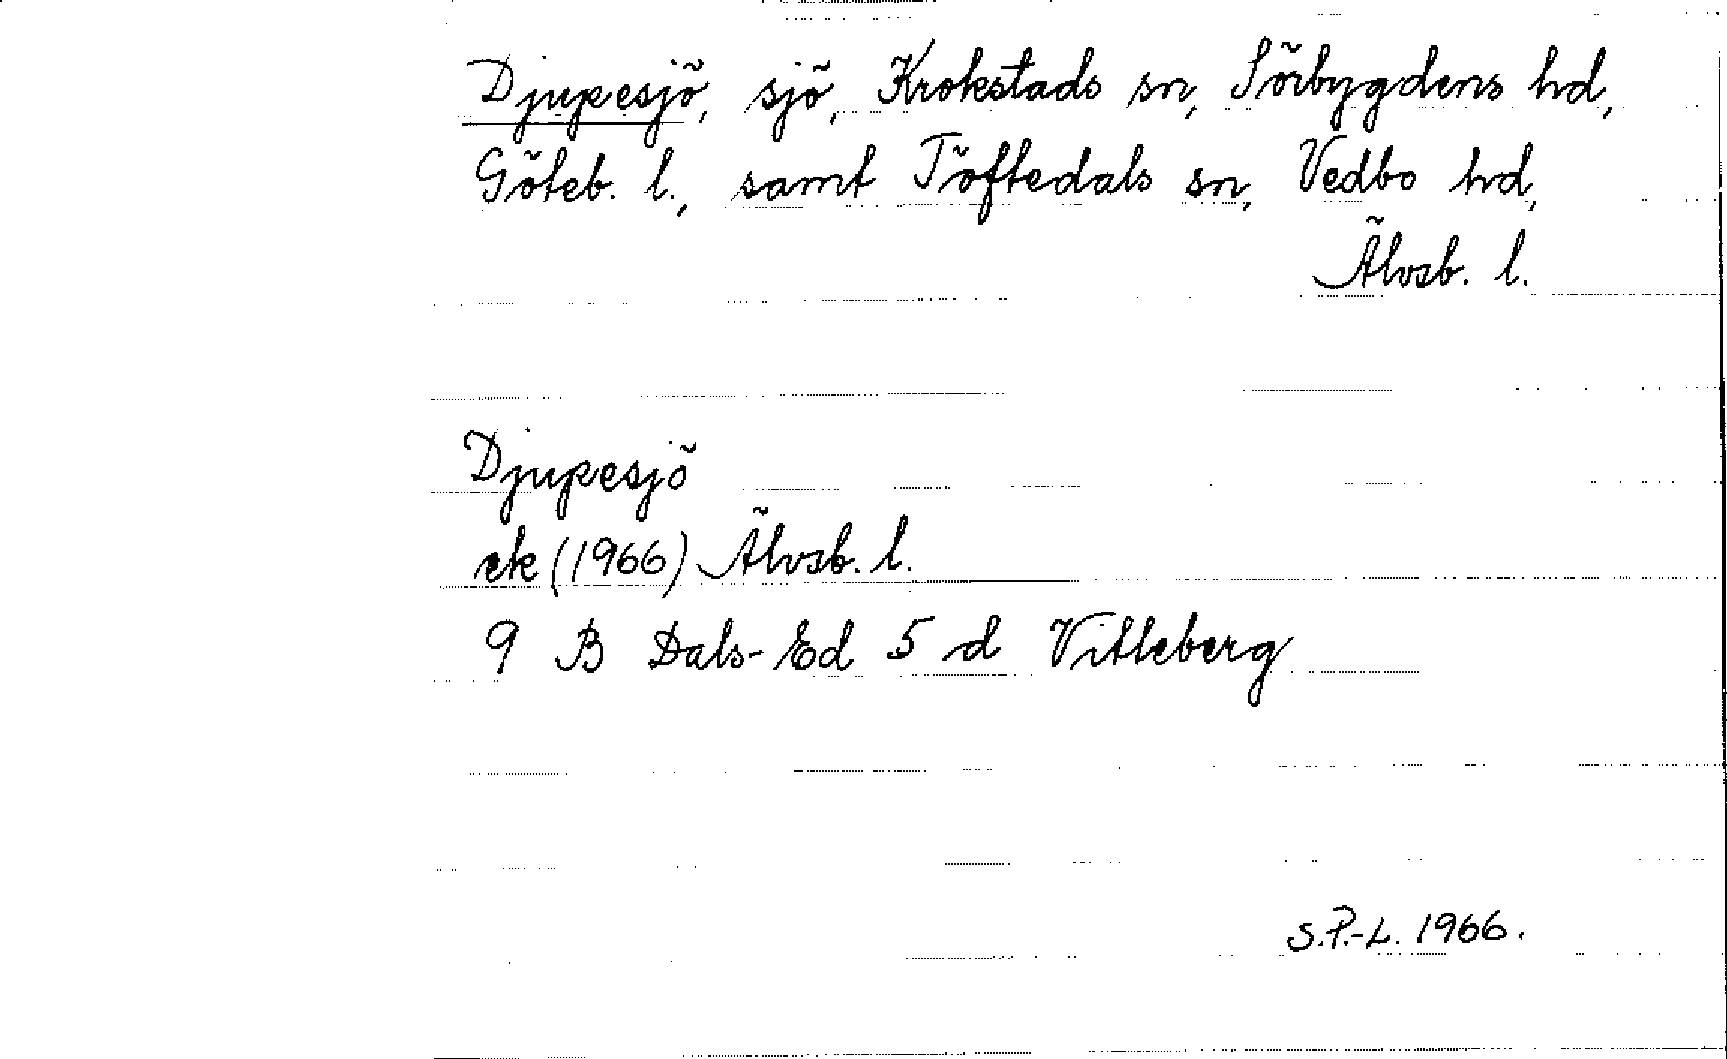 Djupesjö, sjö, Krokstads sn, Sörbygdens hd,
Göteb. l., samt Töftedals sn, Vedbo hd,
Älvsb. l.
Djupesjö
ek (1966) Älvsb. l.
9 B Dals-Ed 5 d Vitleberg
S.P.-L. 1966.